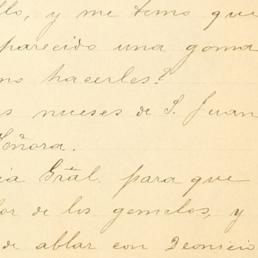 llo, y me temo que
parecido una goma
mo hacerles?
as nueses de S. Juan
Señora.
ia Gral. para que
lor de los gemelos, y
de ablar con Leonicio